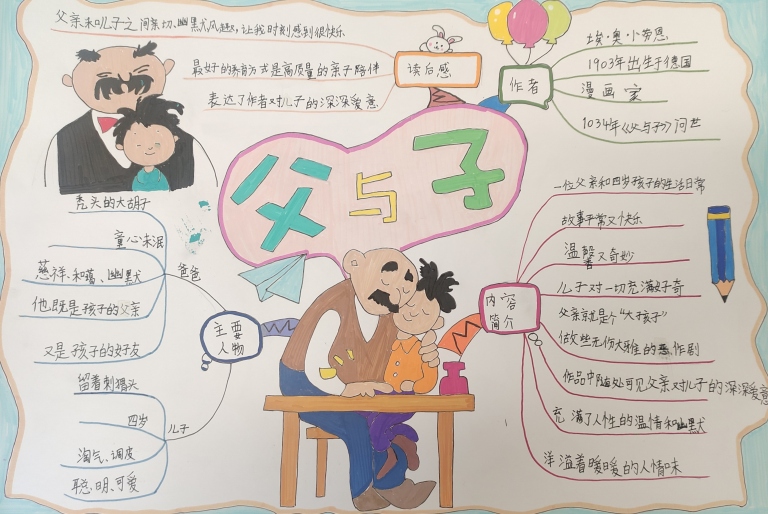 父与子
读后感
父亲和儿子之间亲切、幽默风趣，让我时刻感到很快乐
最好的养育方式是高质量的亲子陪伴
表达了作者对儿子的深深爱意
作者
埃·奥·卜劳恩
1903年出生于德国
漫画家
1034年《父与子》问世
主要
人物
爸爸
秃头的大胡子
童心未泯
慈祥、和蔼、幽默
他既是孩子的父亲
又是孩子的好友
儿子
留着刺猬头
四岁
淘气、调皮
聪、明、可爱
内容
简介
一位父亲和四岁孩子的生活日常
故事平常又快乐
温馨又奇妙
儿子对一切充满好奇
父亲就是个“大孩子”
做些无伤大雅的恶作剧
作品中随处可见父亲对儿子的深深爱意
充满了人性的温情和幽默
洋溢着暖暖的人情味